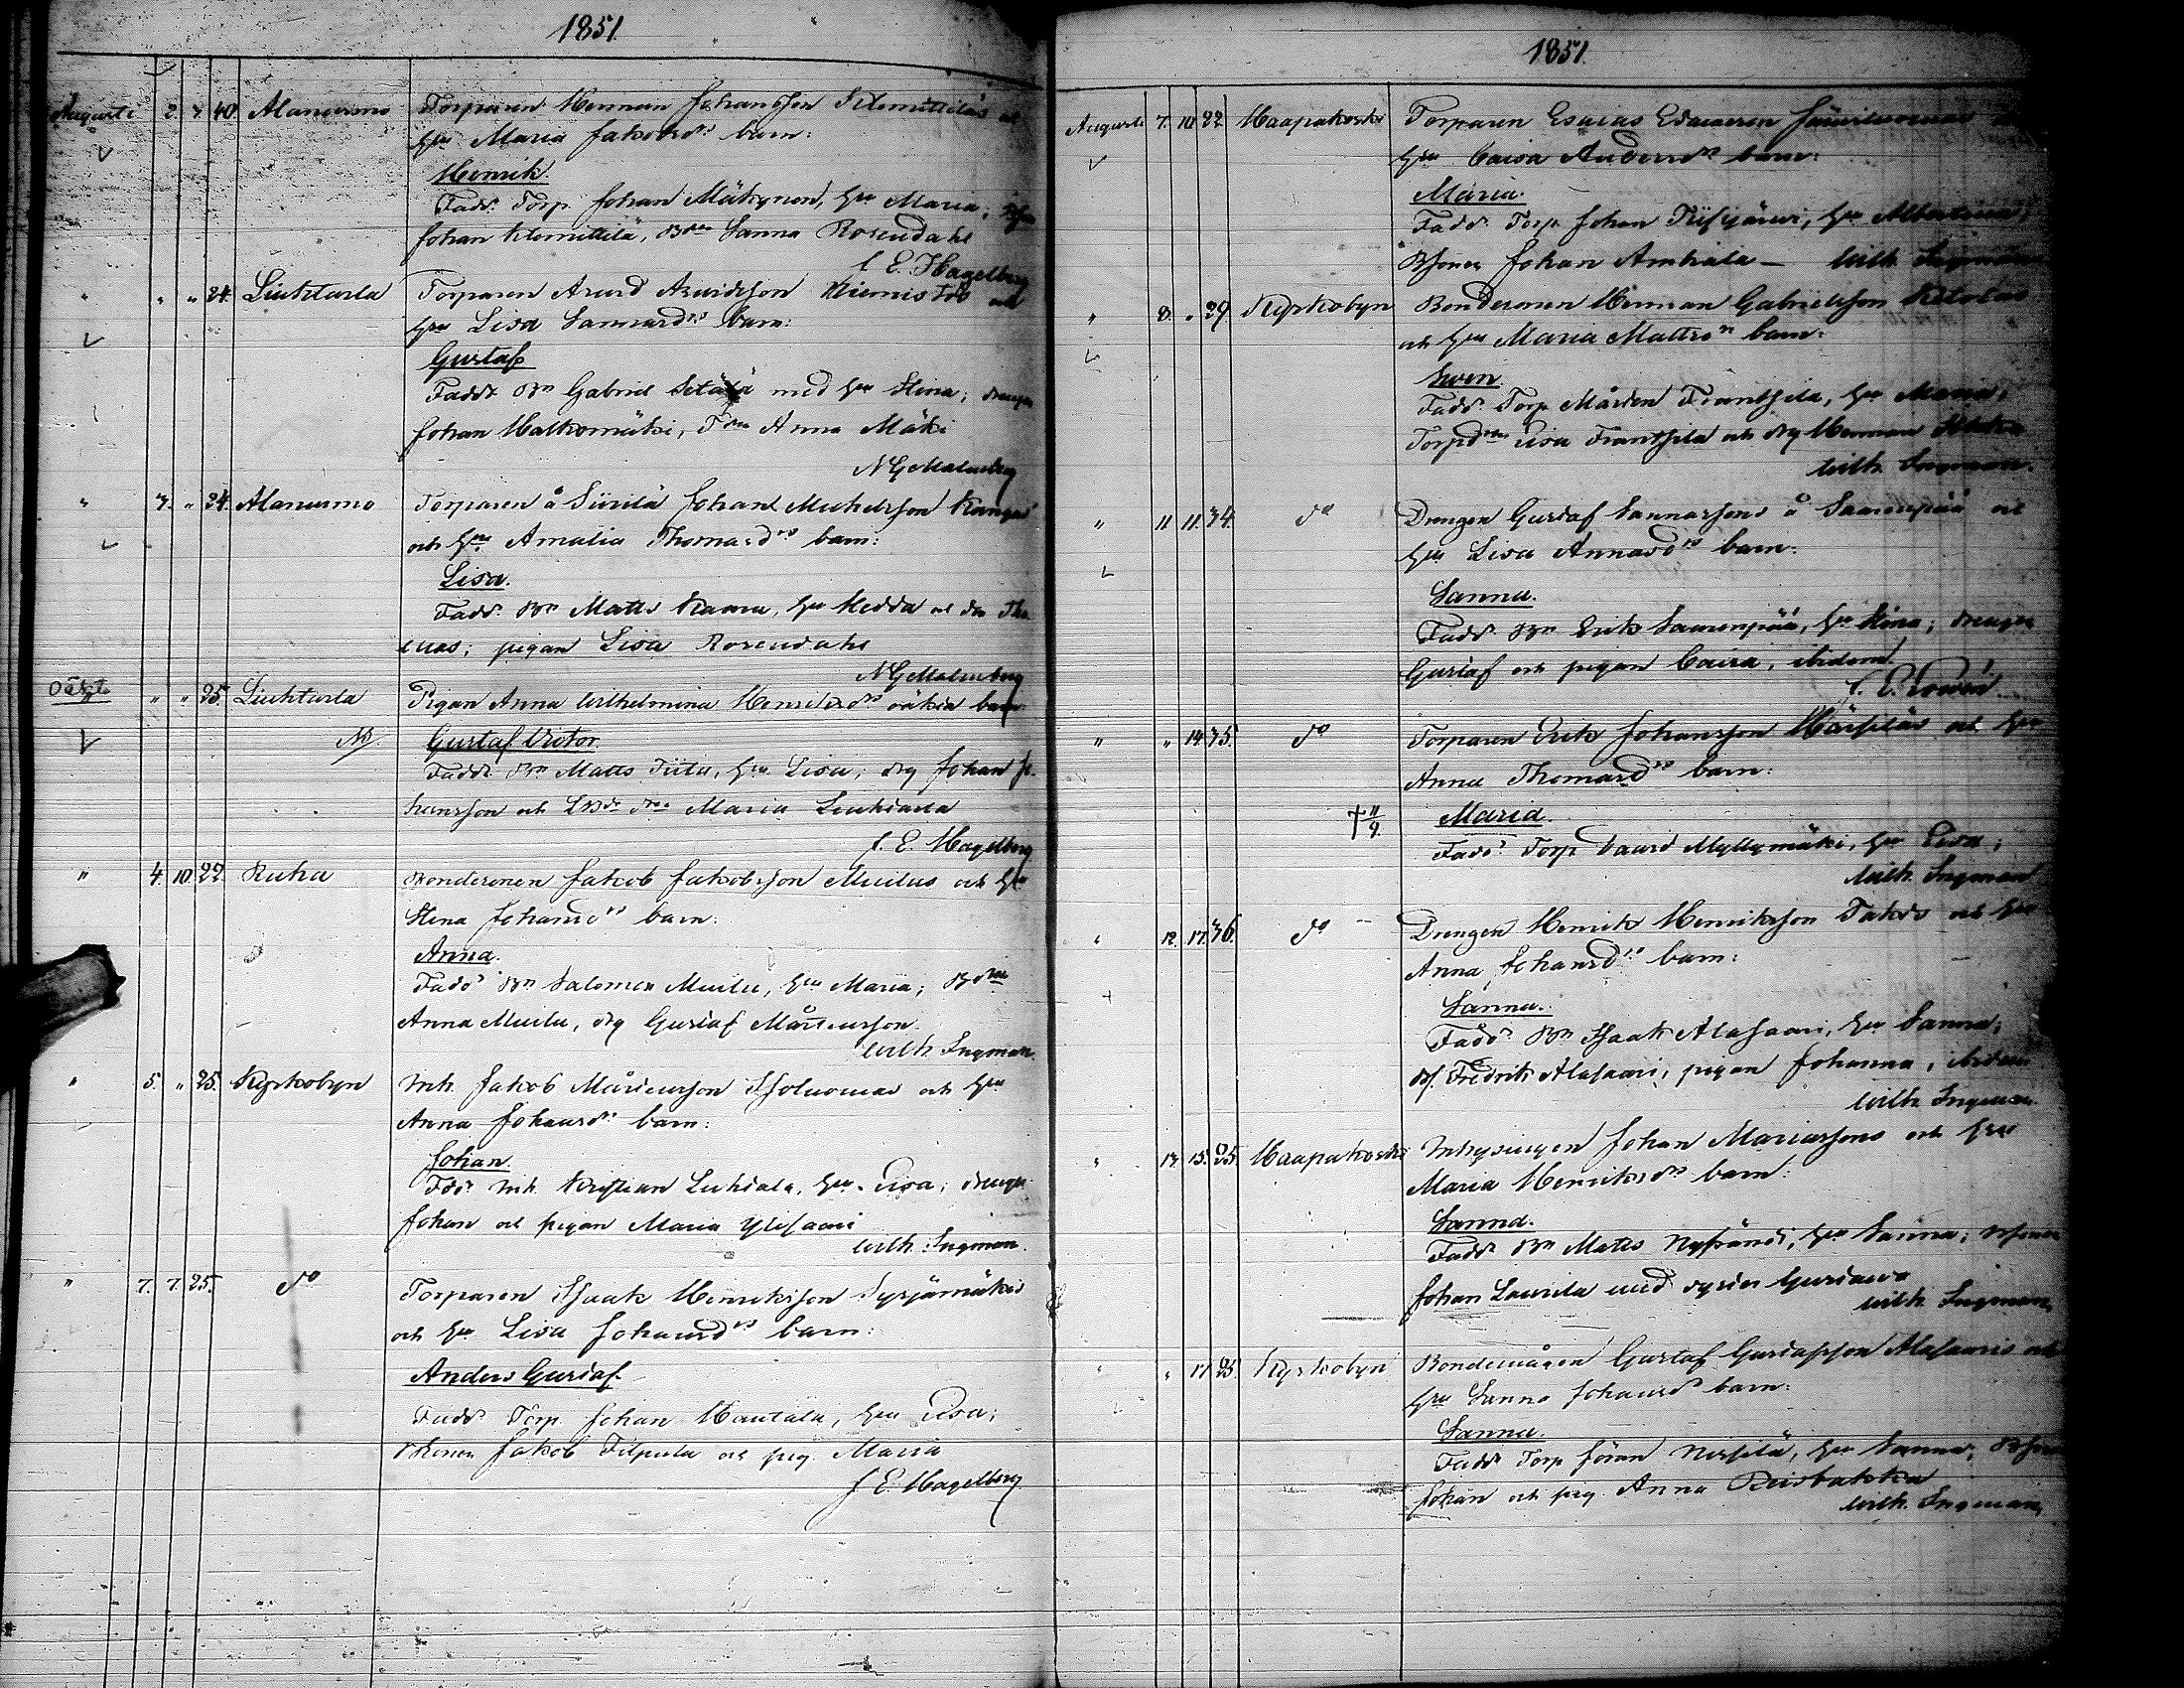 1851
Augusti 2. 3. 40. Alanurmo Torparen Herman Johansson Klemettiläs och
hu Maria Jakobsdrs barn:
Henrik.
Fadd. Torp. Johan Mäkynen, hu Maria;
Johan Klemettilä, Sanna Rosendahl
J. E. Hagelberg
" " " 24. Liuhtarla Torparen Arvid Arvidsson Niemistös och
hu Lisa Sannasdrs barn:
Gustaf
Fadd. Bn Gabriel Setälä med hu Stina; drengen
Johan Malkamäki, Anna Mäki
N G Malmberg
" 3. " 24. Alanurmo Torparen å Siirilä Johan Michelsson Kangas
och hu Amalia Thomasdrs barn:
Lisa.
Fadd. Bn Matts Kaara, hu Hedda
; pigan Lisa Rosendahl
N G Malmberg
Oäkta " " 25. Liuhtarla Pigan Anna Wilhelmina Henriksdrs oäkta barn
NB Gustaf Victor.
Fadd. Bn Matts, hu Lisa; drg Johan Jo-
hansson och Maria Liuhtarla
J. E. Hagelberg
" 4. 10. 22. Ruha Bondesonen Jakob Jakobsson Muilus och hu
Stina Johansdrs barn:
Anna.
Fadd. Bn Salomon Muilu, hu Maria;
Anna Muilu, drg Gustaf Mårtensson.
Wilh. Ingman.
" 5. " 25. Kyrkobyn Inh. Jakob Mårtensson Isoluomas och hu
Anna Johansdrs barn:
Johan.
Fadd. Inh. Kristian Luhtala, hu Lisa; drengen
Johan och pigan Maria Ylisaari
Wilh. Ingman.
" 7. 7. 25. do Torparen Isaak Henriksson Syrjämäkis
och hu Lisa Johansdrs barn:
Anders Gustaf.
Fadd. Torp. Johan Hautala, hu Lisa;
Jakob Filppula och pig. Maria
J E. Hagelberg
1851.
Augusti 7. 10. 22. Haapakoski Torparen Esaias Esaiasson
hu Caisa Andersdrs barn:
Maria.
Fadd. Torp. Johan Tiisijärvi, hu Albertina;
Bsonen Johan Anttila — Wilh. Ingman
" 8. " 29. Kyrkobyn Bondesonen Herman Gabrielsson Ketolas
och hu Maria Mattsdrs barn:
Sven.
Fadd. Torp Mårten Franttila, hu Maria;
Lisa Franttila och drg Herman
Wilh. Ingman.
" 11. 11. 34. do Drengen Gustaf Sannassons å Saarenpää och
hu Lisa Annasdrs barn:
Sanna.
Fadd. Bn Erik Saarenpää, hu Stina; drengen
Gustaf och pigan Caisa, ibidem
" " 14. 35. do Torparen Erik Johansson och hu
Anna Thomasdrs barn:
† 11/9. Maria.
Fadd. Torp David Myllymäki, hu Lisa;
Wilh. Ingman
" 12. 17. 36. do Drengen Henrik Henriksson och hu
Anna Johansdrs barn:
Sanna.
Fadd. Bn Isaak Alasaari, hu Sanna;
Bs. Fredrik Alasaari; pigan Johanna, ibidem
Wilh. Ingman.
" 13. 15. 25. Haapakoski Inhysingen Johan Mariassons och hu
Maria Henriksdrs barn:
Sanna.
Fadd. Bn Matts Nyrändi, hu Sanna; Bsonen
Johan Laurila med syster Gustava
Wilh. Ingman.
" " 17. 25. Kyrkobyn Bondemågen Gustaf Gustafsson Alasaaris och
hu Sanna Johansdrs barn:
Sanna.
Fadd. Torp Jöran, hu Sanna;
Johan och pig. Anna Ruisbakka
Wilh. Ingman.